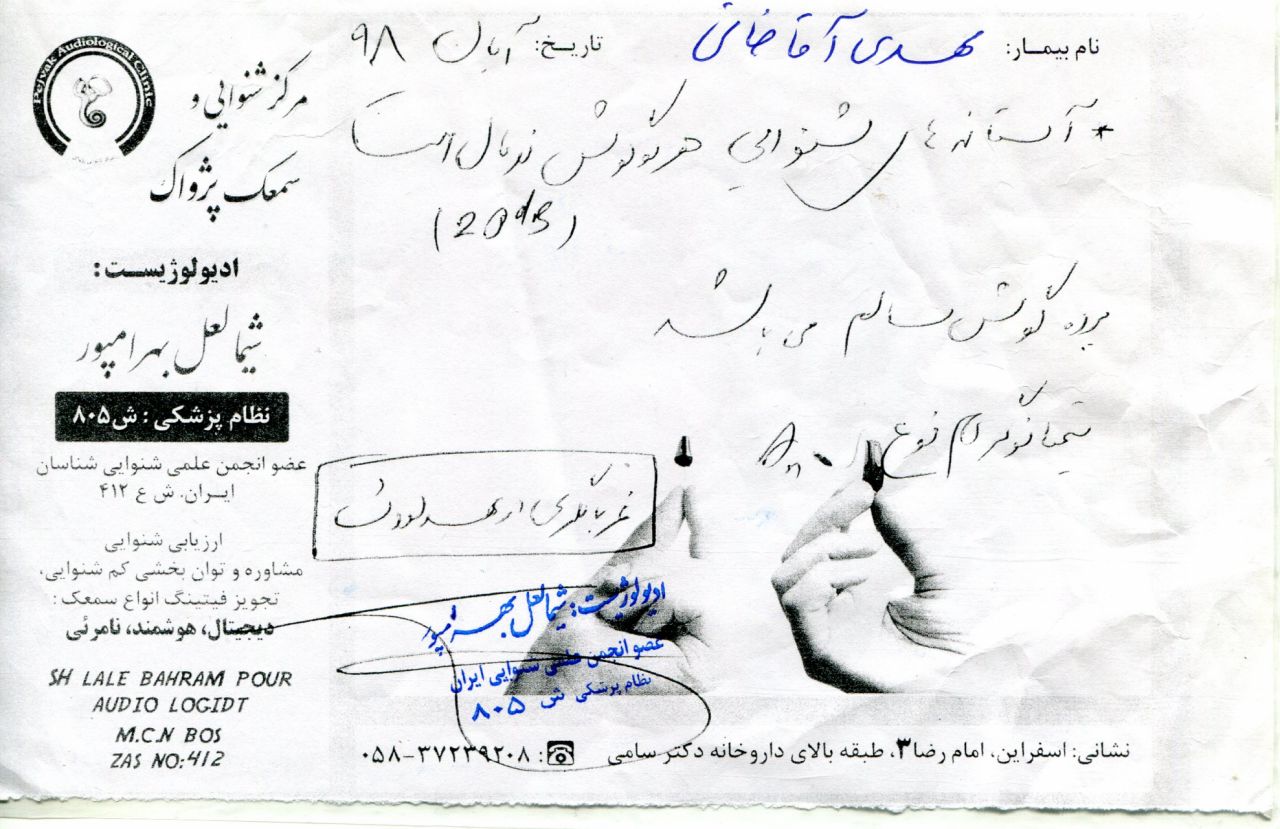 نام بیمار: مهدی آقاخانی
تاریخ: آبان ۹۸
* آستانه های شنوایی هر دو گوش نرمال است
(20dB)
پرده گوش سالم می باشد
تمپانوگرام نوع An
غربالگری
Pejvak Audiological Clinic
مرکز شنوایی و
سمعک پژواک
ادیولوژیست:
شیما لعل بهرامپور
نظام پزشکی : ش ۸۰۵
عضو انجمن علمی شنوایی شناسان
ایران. ش ع ۴۱۲
ارزیابی شنوایی
مشاوره و توان بخشی کم شنوایی،
تجویز فیتینگ انواع سمعک :
دیجیتال، هوشمند، نامرئی
SH LALE BAHRAM POUR
AUDIO LOGIDT
M.C.N BOS
ZAS NO:412
ادیولوژیست: شیما لعل بهرامپور
عضو انجمن علمی شنوایی ایران
نظام پزشکی ش ۸۰۵
نشانی: اسفراین، امام رضا ۳، طبقه بالای داروخانه دکتر سامی ☎: ۰۵۸-۳۷۲۳۹۲۰۸